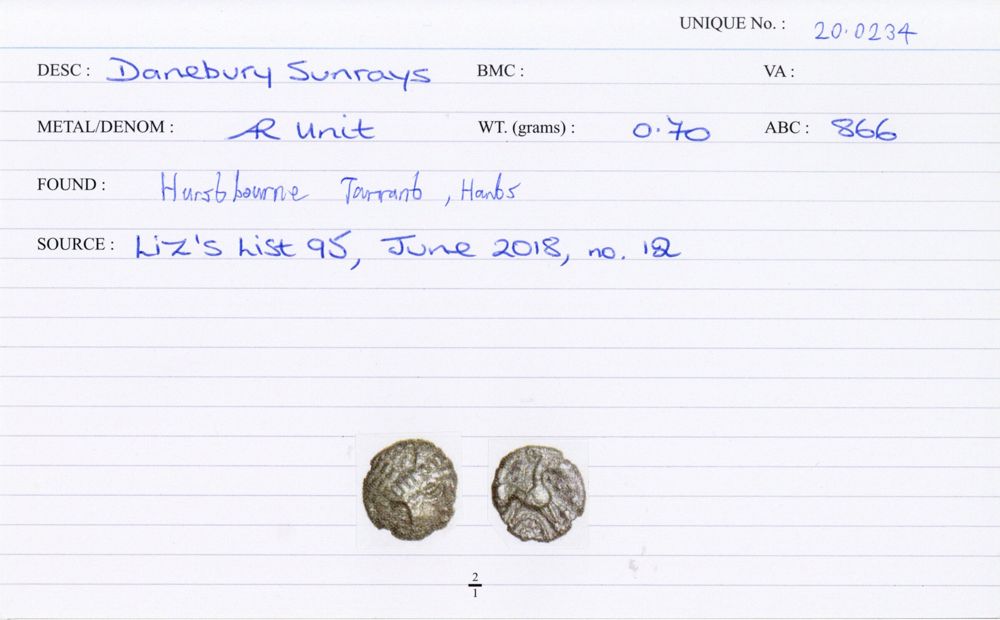 UNIQUE No. : 20.0234
DESC : Danebury Sunrays BMC : VA :
METAL/DENOM : AR Unit WT. (grams) : 0.70 ABC : 866
FOUND : Hurstbourne Tarrant, Hants
SOURCE : Liz's List 95, June 2018, no. 12
2
1